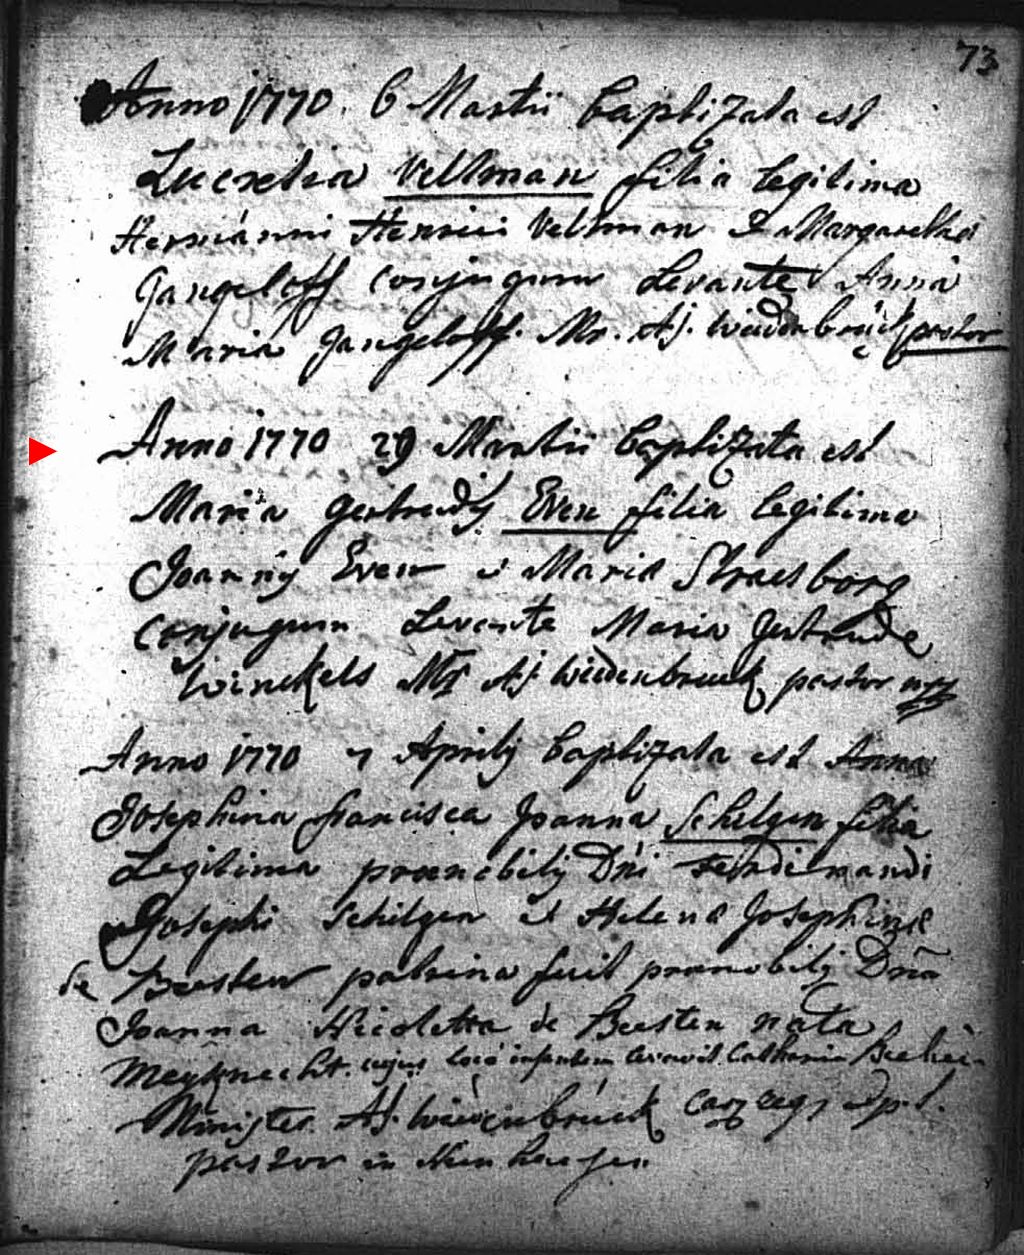 73
Anno 1770 6 Martii baptizata est
Lucretia Veltman filia legitima
Hermanni Henrici Veltman & Margaretha
Gangeloff conjugum Levante Anna
Maria Gangeloff. Mr. Aj. Wiedenbrück pastor
Anno 1770 29 Martii baptizata est
Maria Gertrudis Even filia legitima
Joannij Even et Maria Straesborg
Conjugum Levante Maria Gertrude
Winckels Mr Aj Wiedenbrueck pastor
Anno 1770 7 Aprilij baptizata est Anna
Josephina francisca Joanna Schilgen filia
Legitima praenobilij Dni ferdinandi
Josephi Schilgen et Helena Josephina
de Beesten patrina fuit praenobilij Dna
Joanna Nicoletta de Beesten nata
Meyknecht. cujus loco infantem levavit Catharina
Minister Aj. Wiedenbrück
pastor in Nienhaegen